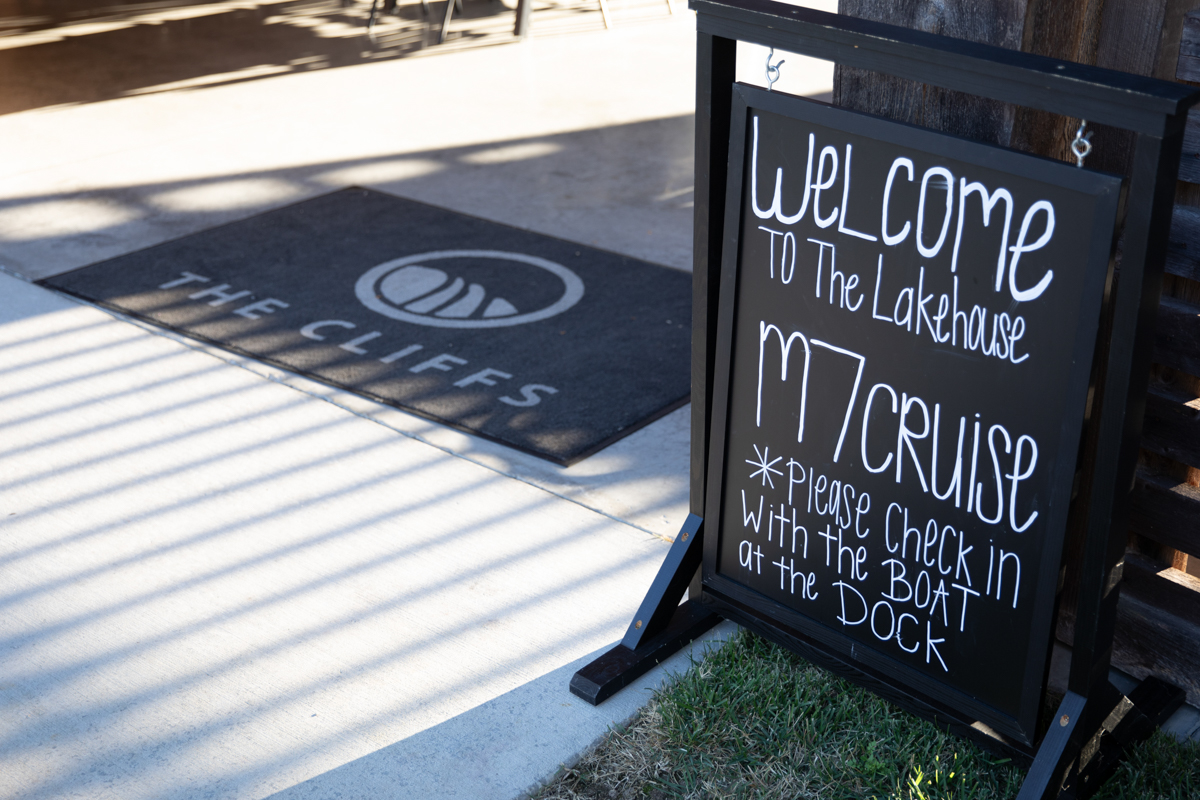 THE CLIFFS
WeLCOMe
TO The Lakehouse
M7CRUise
*Please Check in
With the BOAT
at the DOCK